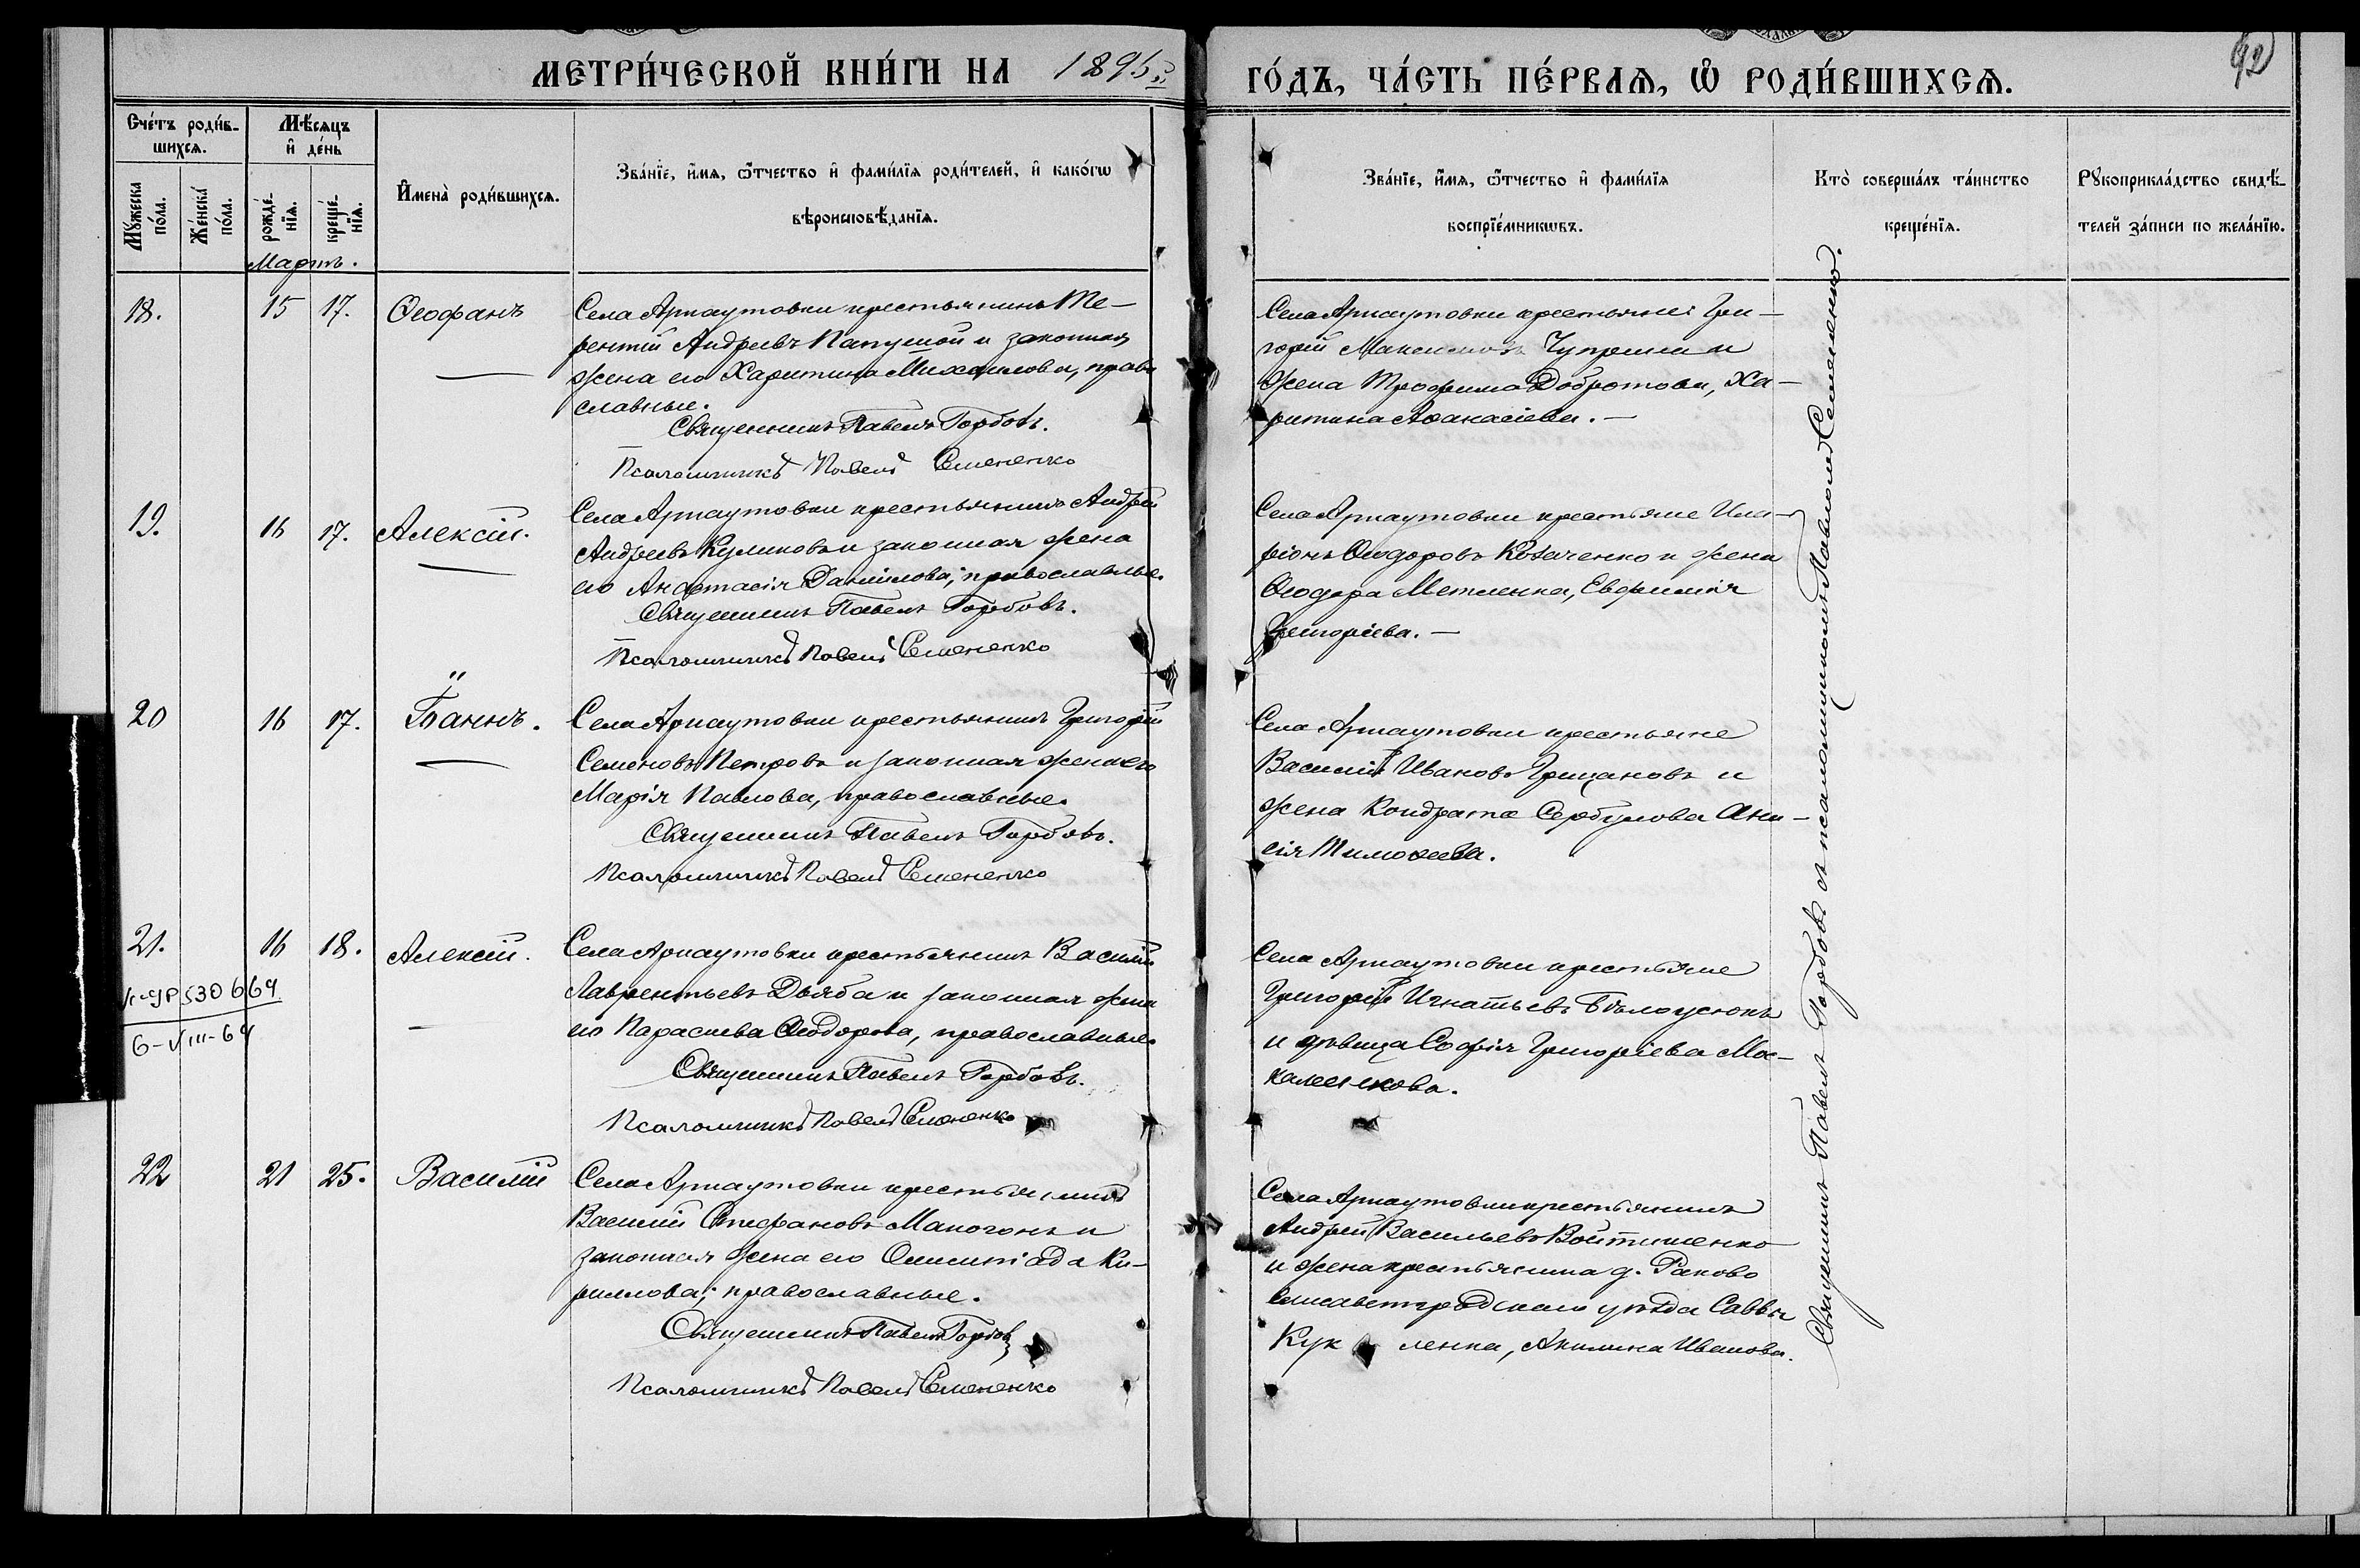 МЕТРИ́ЧЕСКОЙ КНИ́ГИ НА 1895й
ГО́ДЪ, ЧА́СТЬ ПЕ́РВАѦ, Ѡ҆ РОДИ́ВШИХСѦ.
92
Сче́тъ роди́в-
шихсѧ.
Мѣ́сѧцъ
и҆ де́нь
Мꙋ́жеска
по́ла.
Же́нска
по́ла.
рожде́-
нїѧ.
креще́-
нїѧ.
И҆мена̀ роди́вшихсѧ.
Зва́нїе, и҆́мѧ, ѻ҆́тчество и҆ фами́лїѧ роди́телей, и҆ како́гѡ
вѣроисповѣ́данїѧ.
Зва́нїе, и҆́мѧ, ѻ҆́тчество и҆ фами́лїѧ
воспрїе́мникѡвъ.
Кто̀ соверша́лъ та́инство
креще́нїѧ.
Рꙋкоприкла́дство свидѣ́-
телей за́писи по жела́нїю.
Мартъ.
18. 15 17. Ѳеофанъ
Села Арнаутовки крестьянинъ Те-
рентій Андреевъ Папушой и законная
жена его Харитина Михаилова, право
славные.
Священникъ Павелъ Горбовъ.
Псаломщикъ Павелъ Семененко
Села Арнаутовки крестьяне: Гри-
горій Максимовъ Чуприна и
жена Трофима Добротова, Ха-
ритина Аѳанасіева. —
19. 16 17. Алексій.
Села Арнаутовки крестьянинъ Андрей
Андреевъ Куликовъ и законная жена
его Анастасія Даніилова; православные.
Священникъ Павелъ Горбовъ.
Псаломщикъ Павелъ Семененко
Села Арнаутовки крестьяне Ила-
ріонъ Ѳеодоровъ Козаченко и жена
Ѳеодора Метленка, Евфимія
Григоріева. —
20 16 17. Іоаннъ.
Села Арнаутовки крестьянинъ Григорій
Семеновъ Петровъ и законная жена его
Марія Павлова, православные.
Священникъ Павелъ Горбовъ.
Псаломщикъ Павелъ Семененко
Села Арнаутовки крестьяне
Василій Ивановъ Грицановъ и
жена Кондрата Сербулова Ани-
сія Тимоѳеева.
21. 16 18. Алексій.
530664
6-VIII-64
Села Арнаутовки крестьянинъ Василій
Лаврентьевъ Дзяба и законная жена
его Параскева Ѳеодорова, православные.
Священникъ Павелъ Горбовъ.
Псаломщикъ Павелъ Семененко
Села Арнаутовки крестьяне
Григорій Игнатьевъ Бѣлоусюкъ
и дѣвица Софія Григоріева Мос-
каленкова.
22 21 25. Василій
Села Арнаутовки крестьянинъ
Василій Стефановъ Макогонъ и
законная жена его Олимпіада Ки-
риллова; православные.
Священникъ Павелъ Горбовъ
Псаломщикъ Павелъ Семененко
Села Арнаутовки крестьянинъ
Андрей Васильевъ Войтишенко
и жена крестьянина д. Раково
Елисаветградскаго уѣзда Саввы
Кук ленка, Акилина Иванова.
Священникъ Павелъ Горбовъ съ псаломщикомъ Павломъ Семененко.